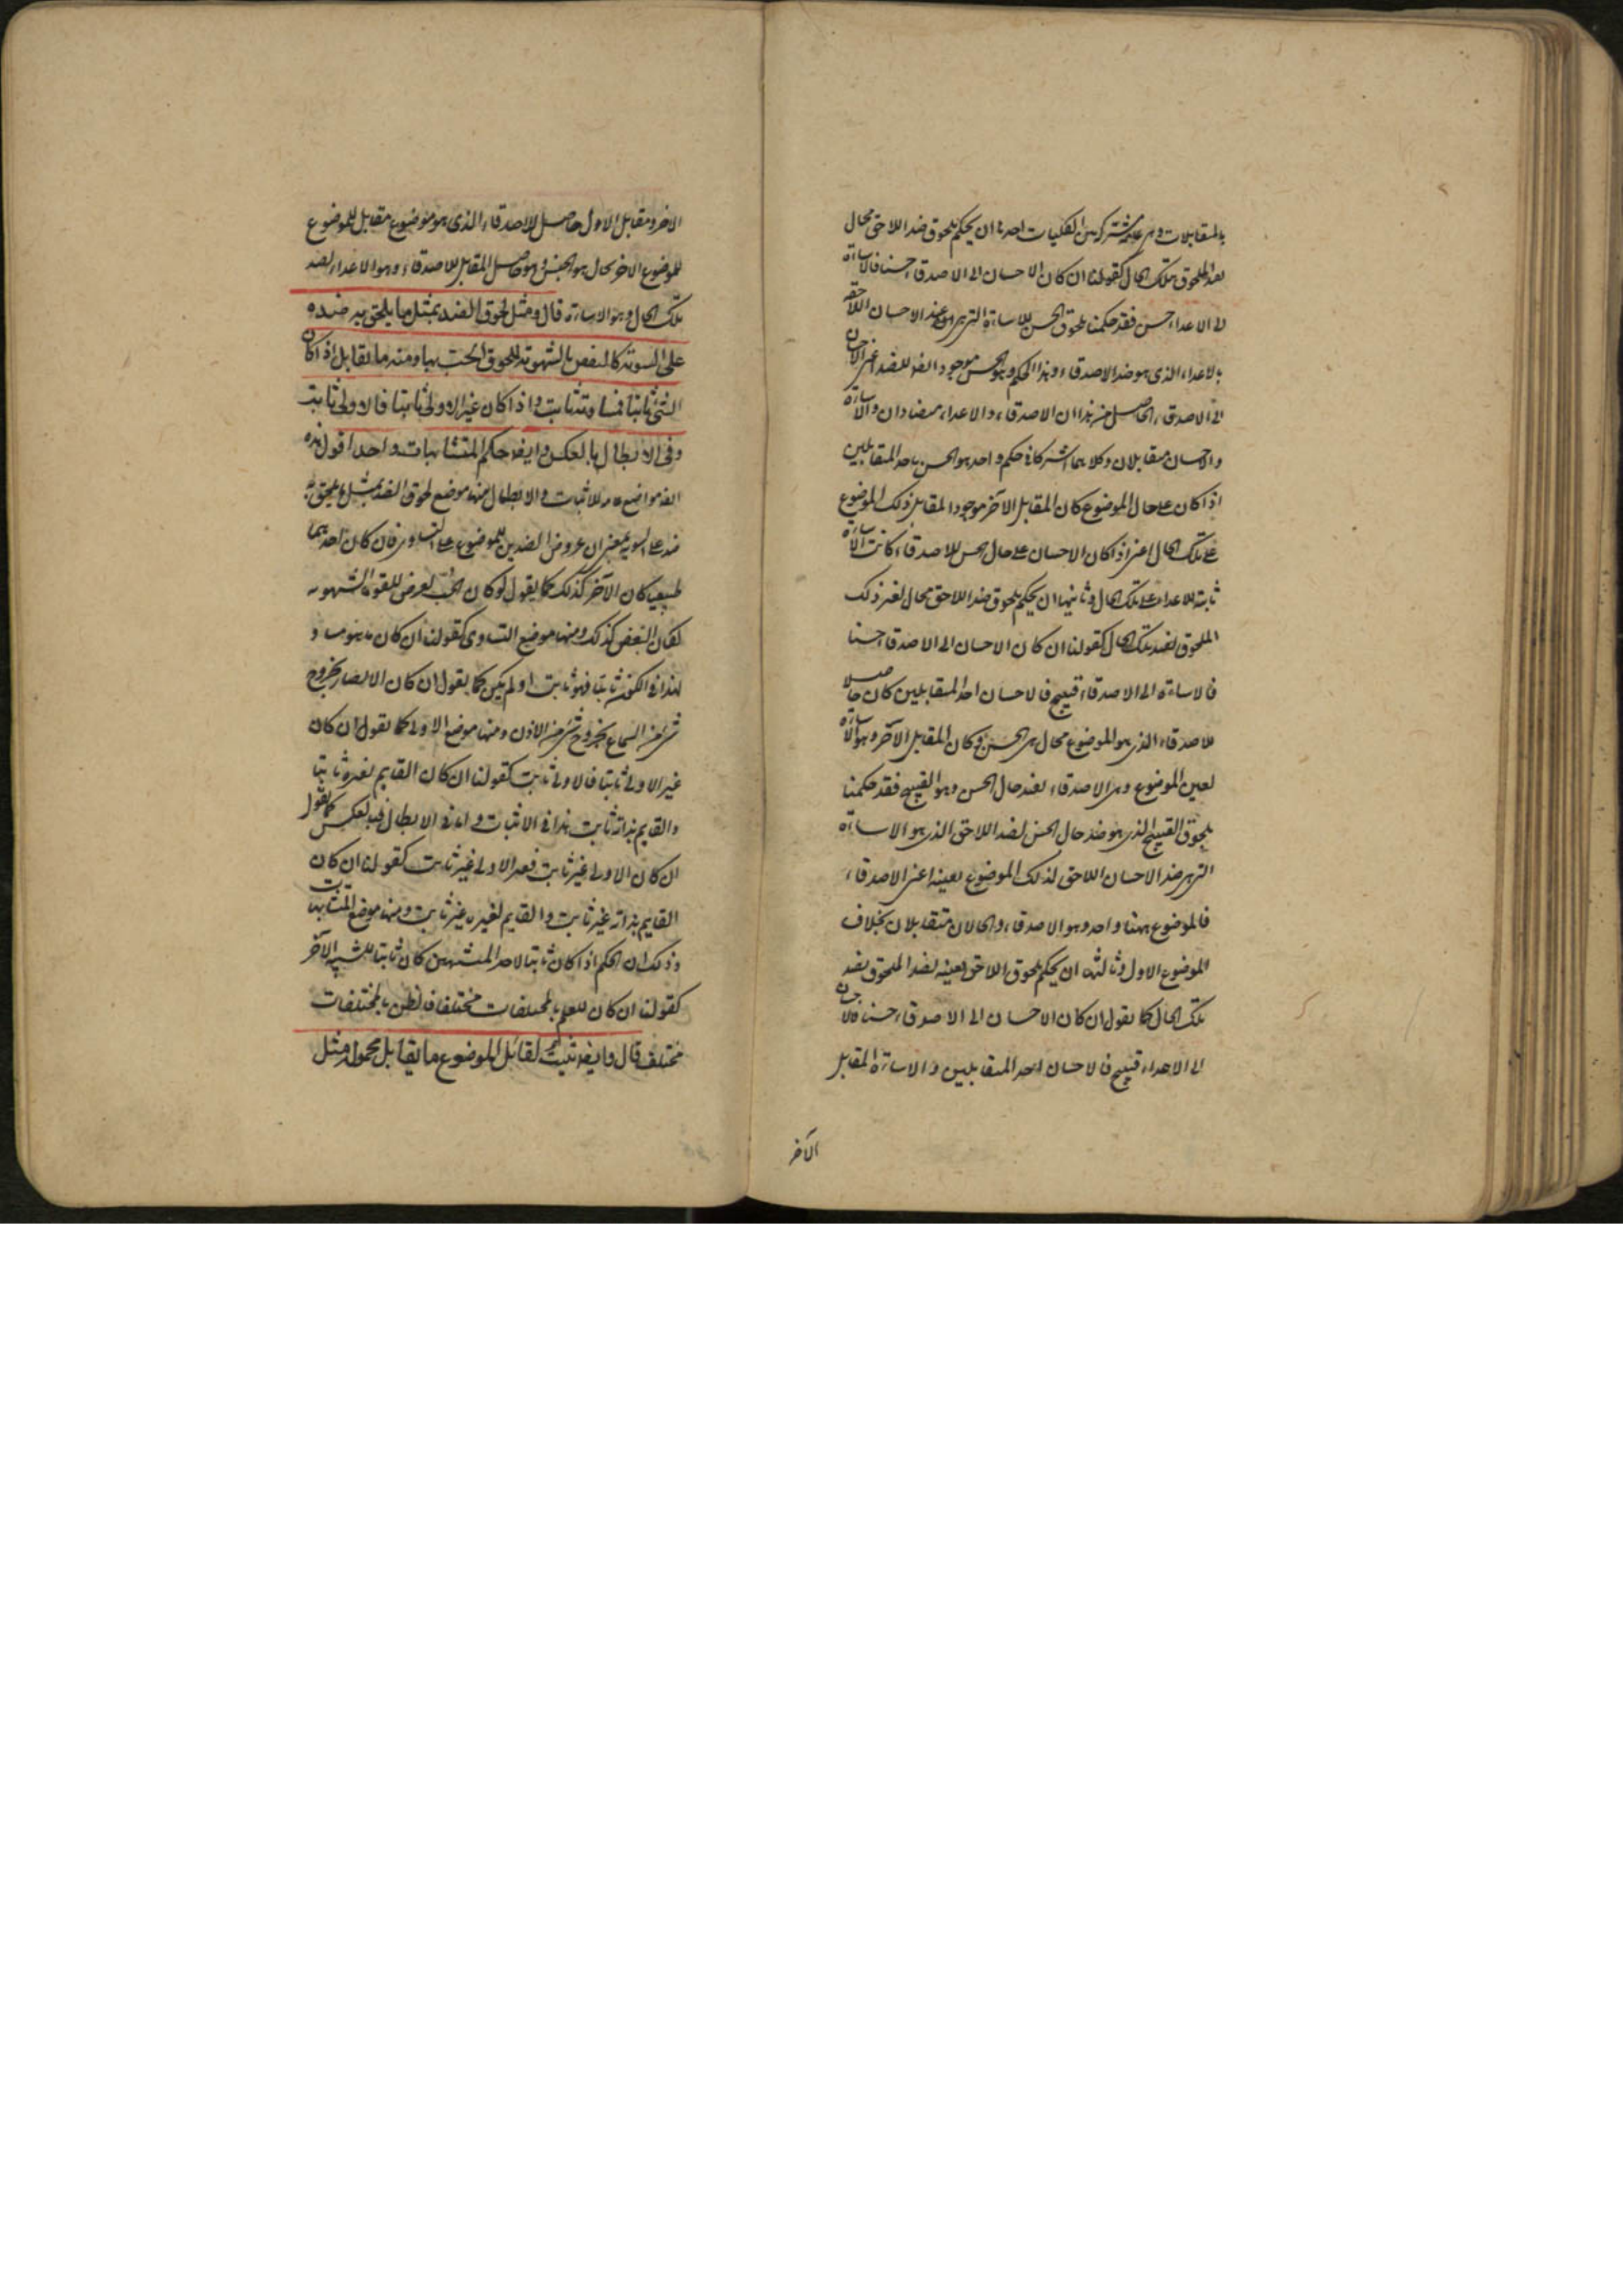 بالمتقابلات وهى علمية مشتركة بين الكليات احدها ان يحكم بلحوق ضد اللاحق بحال
لضد الملحوق بتلك الحال كقولنا ان كان الاحسان الى الاصدقاء حسنا فالاساءة
الى الاعداء حسن فقد حكمنا بلحوق الحسن للاساءة التى هى ضد الاحسان اللاحقة
بالاعداء الذى هو ضد الاصدقاء وهذا الحكم وهو الحسن موجود ايضا للضد اعنى الاحسان
الى الاصدقاء الحاصل من هذا ان الاصدقاء والاعداء متضادان والاساءة
والاحسان متقابلان وكلاهما اشتركا فى حكم واحد هو الحسن باحد المتقابلين
اذا كان على حال الموضوع كان المقابل الآخر موجودا لمقابل ذلك الموضوع
على تلك الحال اعنى اذا كان الاحسان على حال الحسن للاصدقاء كانت الاساءة
ثابتة للاعداء على تلك الحال وثانيها ان يحكم بلحوق ضد اللاحق بحال لغير ذلك
الملحوق لضد تلك الحال كقولنا ان كان الاحسان الى الاصدقاء حسنا
فالاساءة الى الاصدقاء قبيح فالاحسان احد المتقابلين كان حاصلا
للاصدقاء الذى هو الموضوع بحال هى الحسن وكان المقابل الآخر وهو الاساءة
لعين الموضوع وهى الاصدقاء لضد حال الحسن وهو القبيح فقد حكمنا
بلحوق القبيح الذى هو ضد حال الحسن لضد اللاحق الذى هو الاساءة
التى هى ضد الاحسان اللاحق لذلك الموضوع بعينه اعنى الاصدقاء
فالموضوع ههنا واحد وهو الاصدقاء والحالان متقابلان بخلاف
الموضوع الاول وثالثها ان يحكم بلحوق اللاحق بعينه لضد الملحوق بضد
تلك الحال كما يقول ان كان الاحسان الى الاصدقاء حسنا فالاحسان
الى الاعداء قبيح فالاحسان احد المتقابلين والاساءة المقابل
الآخر
الاخر ومقابل الاول حاصل للاصدقاء الذى هو موضوع مقابل للموضوع
للموضوع الاخر بحال هو الحسن وهو حاصل لمقابل للاصدقاء وهو الاعداء لضد
تلك الحال وهو الاساءة قال ومثل لحوق الضد بمثل ما يلحق به ضده
على السوية كالبغض بالشهوة للحوق الحب بها ومنه ما تقابل اذا كان
الشئ ثابتا فمساويه ثابت واذا كان غير الاولى ثابتا فالاولى ثابت
وفى الابطال بالعكس وايضا حكم المتشابهات واحد اقول هذه
ايضا مواضع للاثبات والابطال منها موضع لحوق الضد بمثل ما يلحق به
ضده على السوية بمعنى ان عروض الضدين للموضوع على التساوى فان كان احدهما
طبيعيا كان الآخر كذلك كما يقول لو كان الحب يعرض للقوة الشهوية
لكان البغض كذلك ومنها موضع التساوى كقولنا ان كان ما هو مساو
لهذا فى الكون ثابتا فهو ثابت او لم يكن كما يقول ان كان الابصار بخروج
شئ من السماع بخروج شئ من الاذن ومنها موضع الاولى كما تقول ان كان
غير الاولى ثابتا فالاولى ثابت كقولنا ان كان القايم بغيره ثابتا
والقايم بذاته ثابت هذا فى الاثبات واما فى الابطال فبالعكس كما يقول
ان كان الاولى غير ثابت فغير الاولى غير ثابت كقولنا ان كان
القايم بذاته غير ثابت والقايم لغيره غير ثابت ومنها موضع المتشابهات
وذلك ان الحكم اذا كان ثابتا لاحد المتشابهين كان ثابتا للشبيه الآخر
كقولنا ان كان للعلم بالمختلفات مختلفا فالظن بالمختلفات
مختلف قال وايضا نثبت لقابل الموضوع ما يقابل محموله مثل